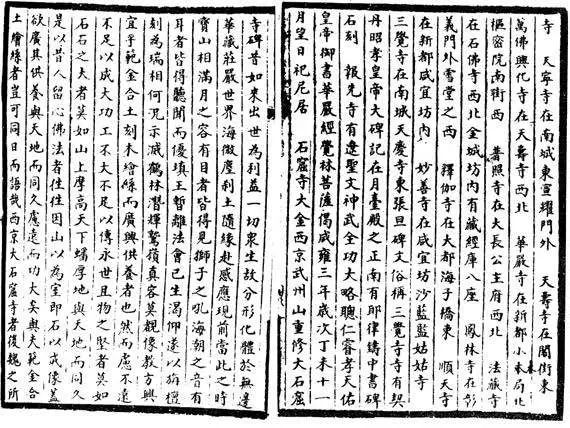 寺　天寧寺在南城東宣耀門外　天壽寺在閣街東
萬佛興化寺在天壽寺西北　華嚴寺在新都小木局北
樞密院南街西　普照寺在大長公主府西北　法藏寺
在石佛寺西北金城坊內有藏經庫八座　鳳林寺在彰
義門外雪堂之西　釋伽寺在大都海子橋東　順天寺
在新都咸宜坊內　妙善寺在咸宜坊沙藍藍姑姑寺
三覺寺在南城天慶寺東張旦碑文俗稱三覺寺寺有契
丹昭孝皇帝大碑記在月臺殿之正南有耶律鑄中書碑
石刻　報先寺有遼聖文神武全功大略聰仁睿孝天佑
皇帝御書華嚴經覺林菩薩偈咸雍三年歲次丁未十一
月望日祀尼居　石窟寺大金西京武州山重修大石窟
寺碑昔如來出世為利益一切衆生故分形化體於無邊
華藏莊嚴世界海微塵剎土隨緣赴感應現前當此之時
寶山相滿月之容有目者皆得見獅子之吼海潮之音有
耳者皆得聽聞而優填王暫離法會已生渴仰遂以旃檀
刻為瑞相何况示滅鶴林潛輝鷲嶺真容莫覩像教方興
宜乎範金合土刻木繪絲而廣興供養者也然而慮不遠
不足以成大功工不大不足以傳永世且物之堅者莫如
石石之大者莫如山上摩高天下蟠厚地與天地而同久
是以昔人留心佛法者往往因山以為室即石以成像蓋
欲廣其供養與天地而同久慮遠而功大矣與夫範金合
土繪絲者豈可同日而語哉西京大石窟寺者後魏之所